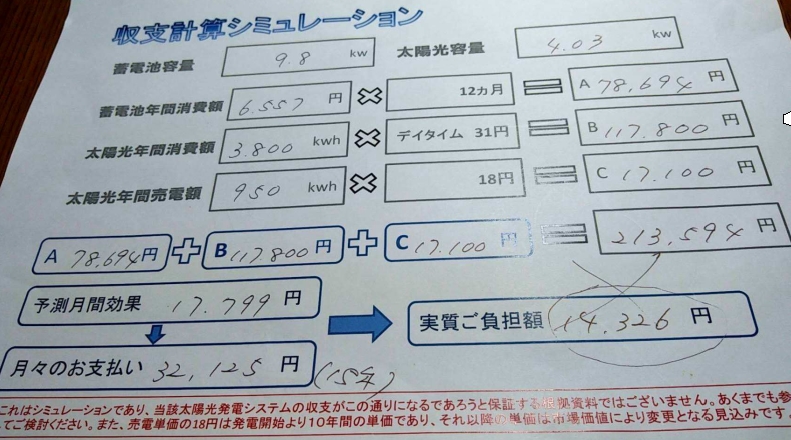 収支計算シミュレーション
蓄電池容量 9.8 kw 太陽光容量 4.03 kw
蓄電池年間消費額 6.557 円 × 12カ月 = A 78,694 円
太陽光年間消費額 3.800 kwh × デイタイム 31円 = B 117.800 円
太陽光年間売電額 950 kwh × 18円 = C 17.100 円
A 78,694円 + B 117.800 円 + C 17.100 円 = 213,594 円
予測月間効果 17.799 円
実質ご負担額 14,326 円
月々のお支払い 32,125 円 (15年)
これはシミュレーションであり、当該太陽光発電システムの収支がこの通りになるであろうと保証する根拠資料ではございません。あくまでも参
てご検討ください。また、売電単価の18円は発電開始より10年間の単価であり、それ以降の単価は市場価値により変更となる見込みです。